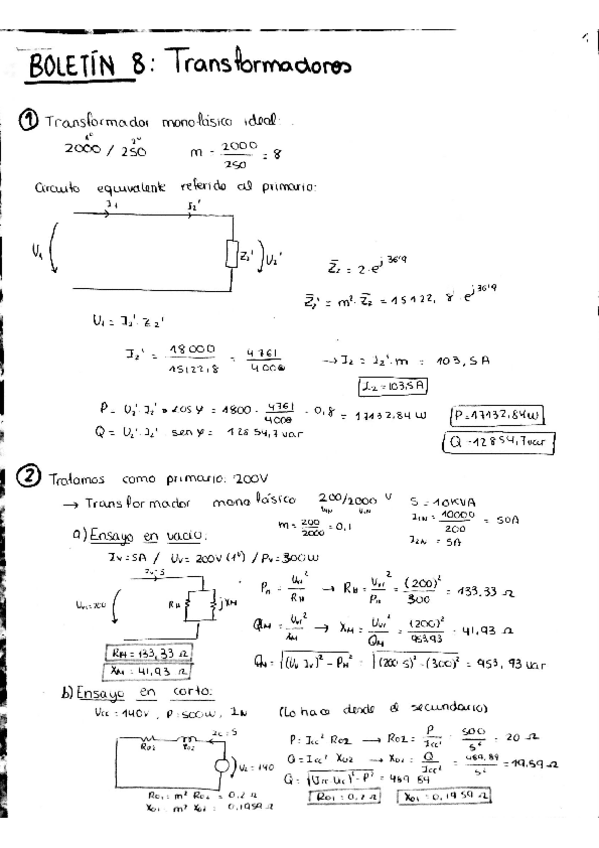 BOLETÍN 8: Transformadores
① Transformador monofásico ideal:
1º 2º
2000 / 250 m = 2000/250 = 8
Circuito equivalente referido al primario:
I₁ I₂'
U₁ Z₂' U₂'
Z̄₂ = 2·e^j36'9
Z̄₂' = m²·Z̄₂ =
U₁ = I₂'·Z₂'
I₂' = 18000/15122,8 = 4761/4000 → I₂ = I₂'·m = 103,5A
I₂ = 103,5A
P = U₂'·I₂'·cos φ = 1800·4761/4000·0,8 = 17132,84 W P = 17132,84W
Q = U₂'·I₂' sen φ = 12854,7 var Q = 12854,7 var
② Tratamos como primario: 200V
→ Transformador monofásico 200/2000 V S = 10KVA
U₁N U₂N
m = 200/2000 = 0,1 I₁N = 10000/200 = 50A
I₂N = 5A
a) Ensayo en vacío:
Iv = 5A / Uv = 200V (1º) / Pv = 300W
Iv = 5
RM jXM
RM = 133,33 Ω
XM = 41,93 Ω
→ RM = = (200)²/300 = 133,33 Ω
→ XM = = (200)²/953,93 = 41,93 Ω
= √((200·5)² - (300)²) = 953,93 var
b) Ensayo en corto:
Ucc = 140V, P = 500W, IN (Lo hago desde el secundario)
Icc = 5
R02 X02
U₂ = 140
P = Icc² R02 → R02 = P/Icc² = 500/5² = 20 Ω
Q = Icc² X02 → X02 = Q/Icc² = 489,89/5² = 19,59 Ω
Q = √((Icc Ucc)² - P²) = 489,89
R01 = m² R02 = 0,2 Ω
X01 = m² X02 = 0,1959 Ω
R01 = 0,2 Ω X01 = 0,1959 Ω